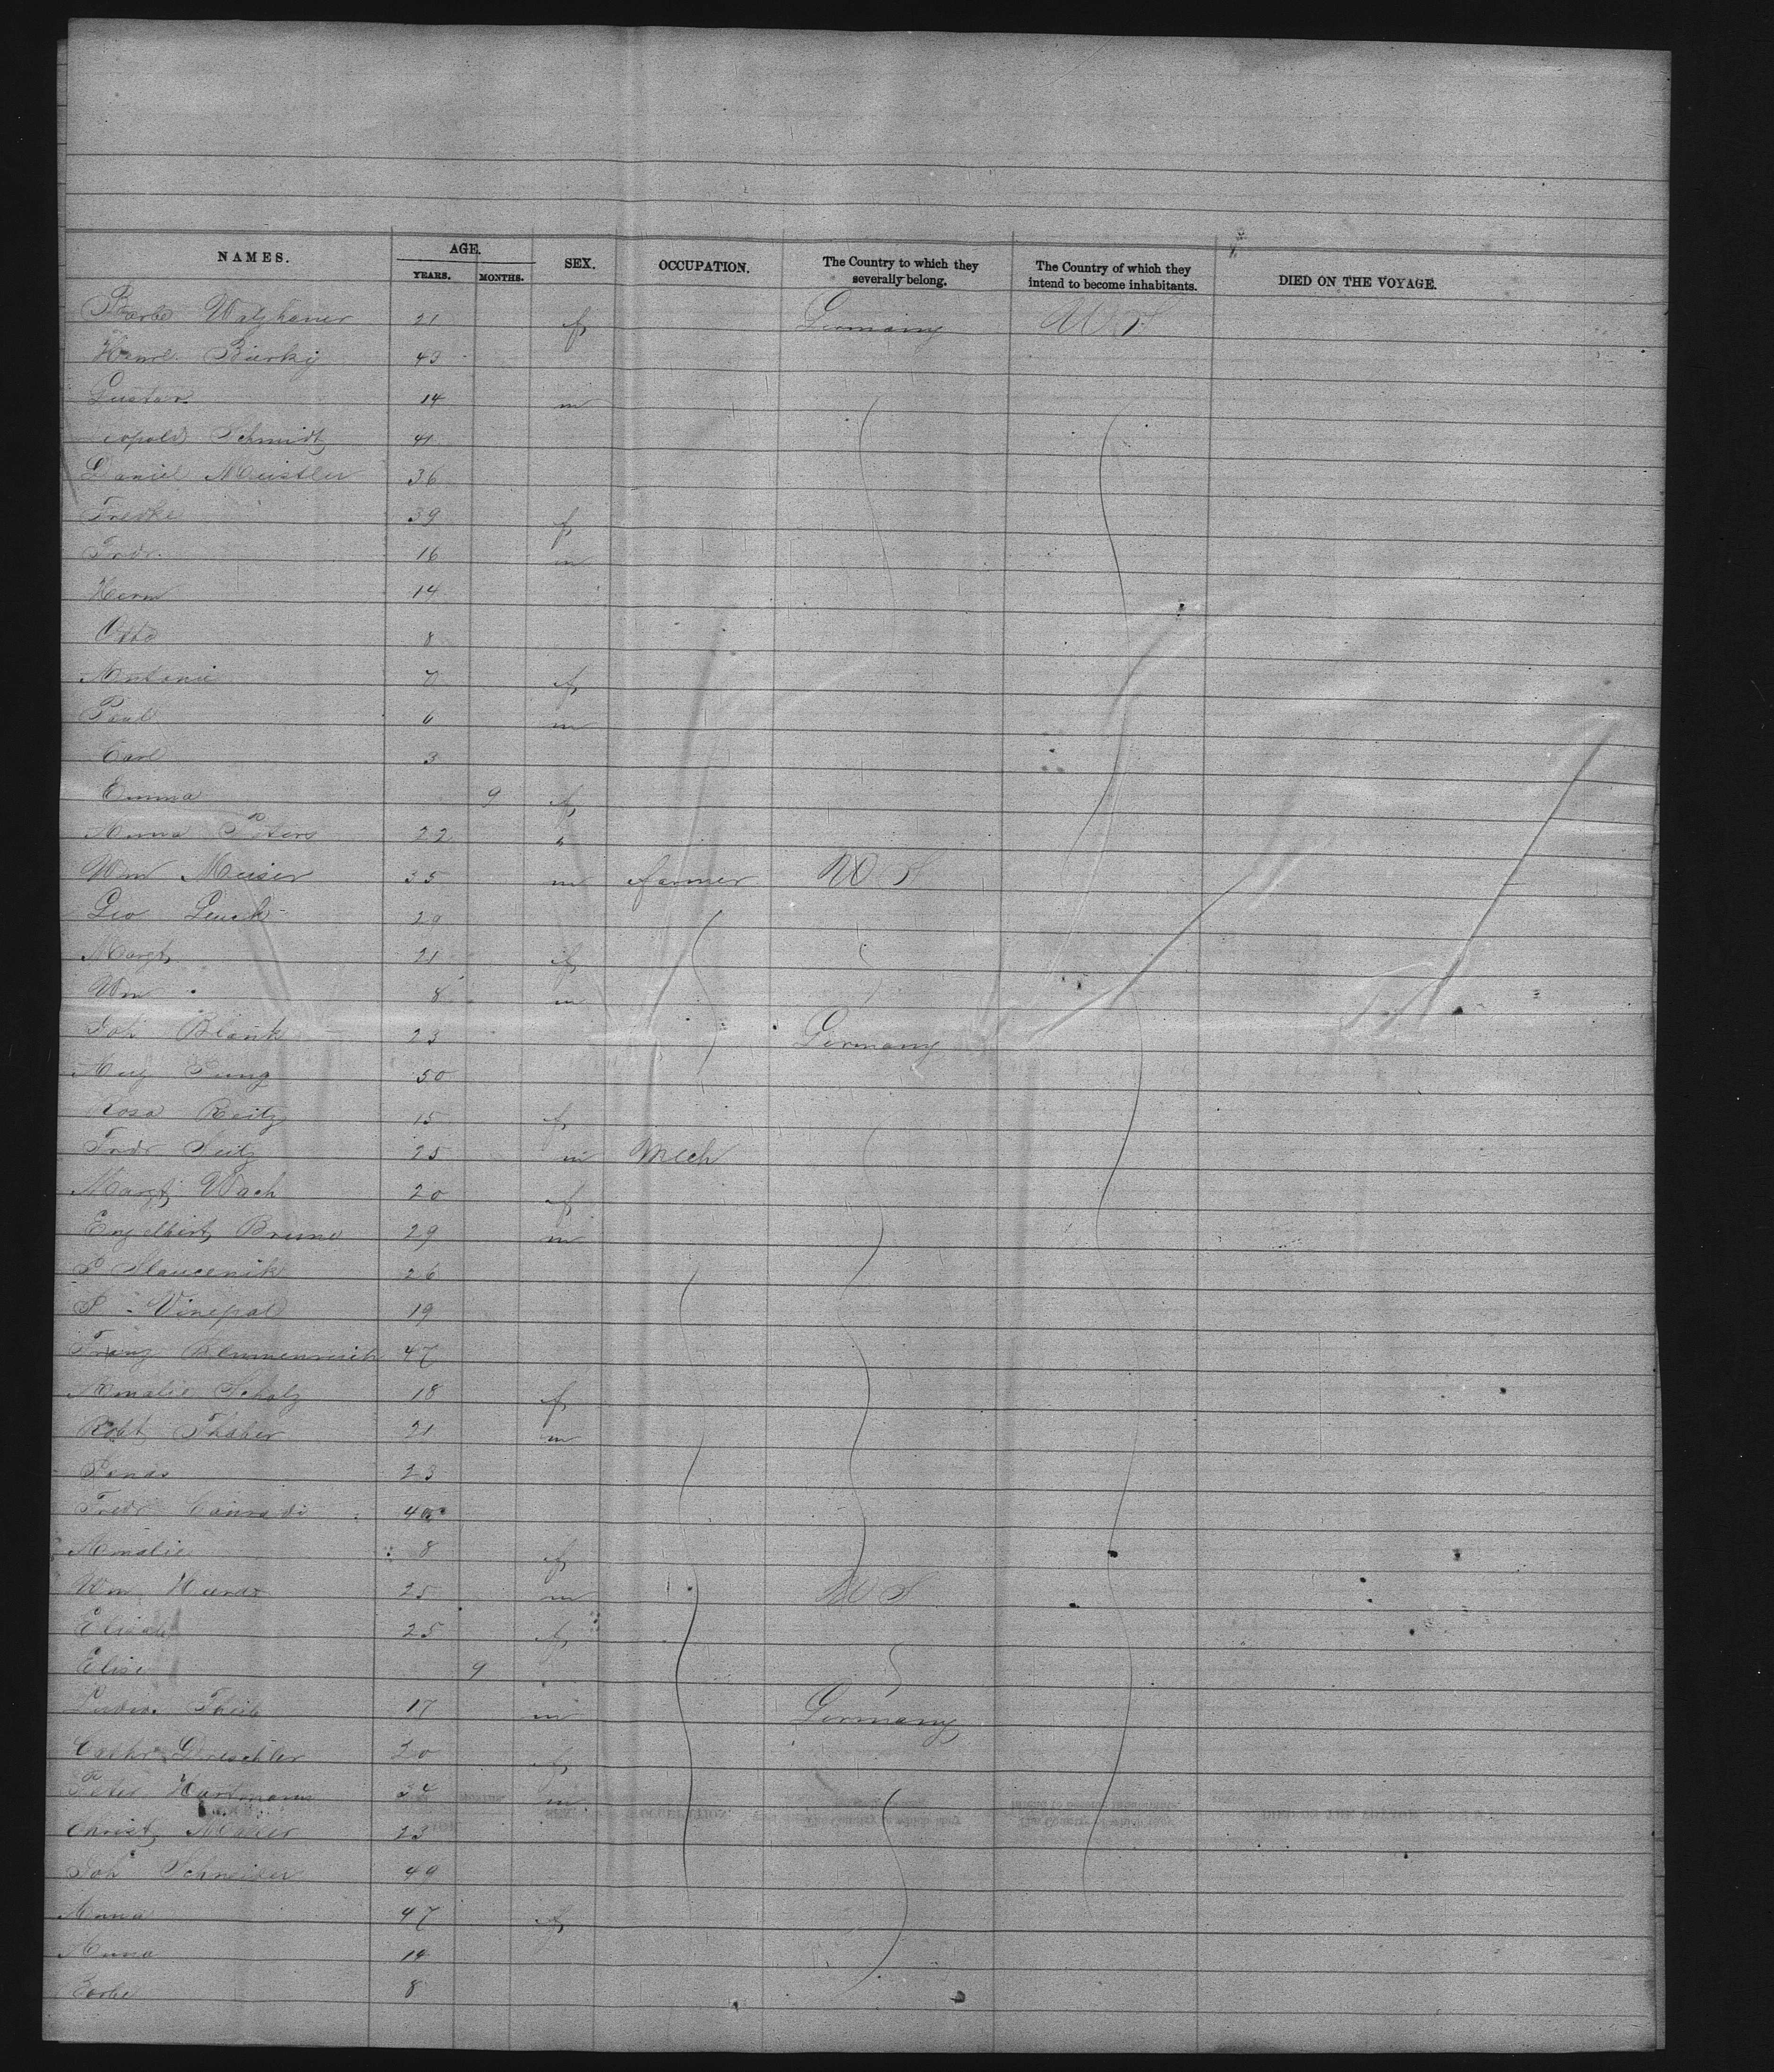 NAMES. AGE. YEARS. MONTHS. SEX. OCCUPATION. The Country to which they severally belong. The Country of which they intend to become inhabitants. DIED ON THE VOYAGE.
Barba Watzhauer 21 f Germany U S
Henre Bürky 43
Gustav 14 m
Leopold Schmidt 41
Daniel Meistler 36
Fredke 39 f
Fredr. 16 m
Herm 14
Otto 8
Antonie 7 f
Paul 6 m
Carl 3
Emma 9 f
Anna Peters 22 "
Wm Meiser 35 m farmer U S
Geo Leuck 29
Margt 21 f
Wm 8 m
Joh Blank 23 Germany
Aug Jung 50
Rosa Reitz 15 f
Fredr Seitz 25 m Mech
Margt Wach 20 f
Engelbert Bruno 29 m
P Slaucenik 26
S Vinepal 19
Franz Blumenreich 47
Amalie Scholz 18 f
Robt Thaber 21 m
23
Fredr Conradi 40
Amalie 8 f
Wm 25 m U S
Elisab 25 f
Elise 9
Ludw. Theis 17 m Germany
Cathr Dreschler 20 f
Peter Hartmann 32 m
Christ Maier 23
Joh Schneider 49
Anna 47 f
Anna 14
Barbe 8